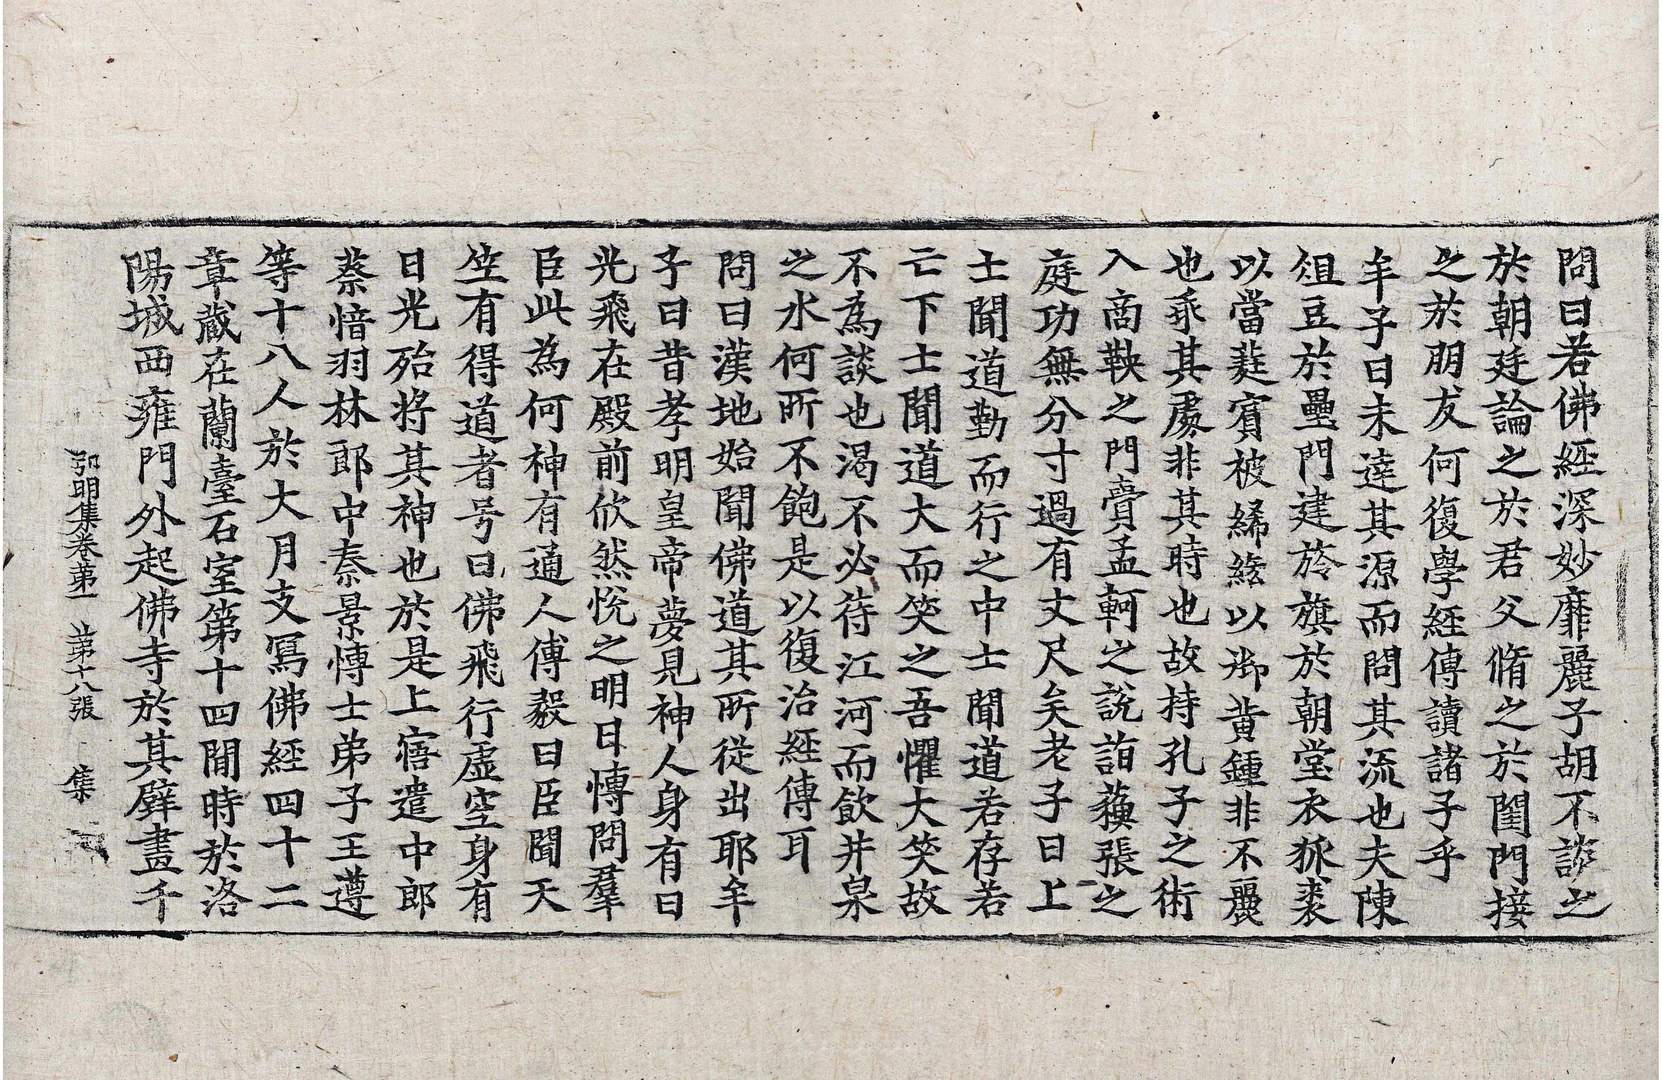 問曰若佛經深妙靡麗子胡不談之
於朝廷論之於君父脩之於閨門接
之於朋友何復學經傳讀諸子乎
牟子曰未達其源而問其流也夫陳
俎豆於壘門建旍旗於朝堂衣狐裘
以當蕤賓被絺綌以御黃鍾非不麗
也乖其處非其時也故持孔子之術
入商鞅之門賷孟軻之說詣蘓張之
庭功無分寸過有丈尺矣老子曰上
士聞道勤而行之中士聞道若存若
亡下士聞道大而笑之吾懼大笑故
不為談也渴不必待江河而飲井泉
之水何所不飽是以復治經傳耳
問曰漢地始聞佛道其所從出耶牟
子曰昔孝明皇帝夢見神人身有日
光飛在殿前欣然悅之明日博問羣
臣此為何神有通人傅毅曰臣聞天
竺有得道者号曰佛飛行虛空身有
日光殆将其神也於是上寤遣中郎
蔡愔羽林郎中秦景博士弟子王遵
等十八人於大月支寫佛經四十二
章藏在蘭臺石室第十四間時於洛
陽城西雍門外起佛寺於其壁畫千
弘明集卷第一 第十八張 集